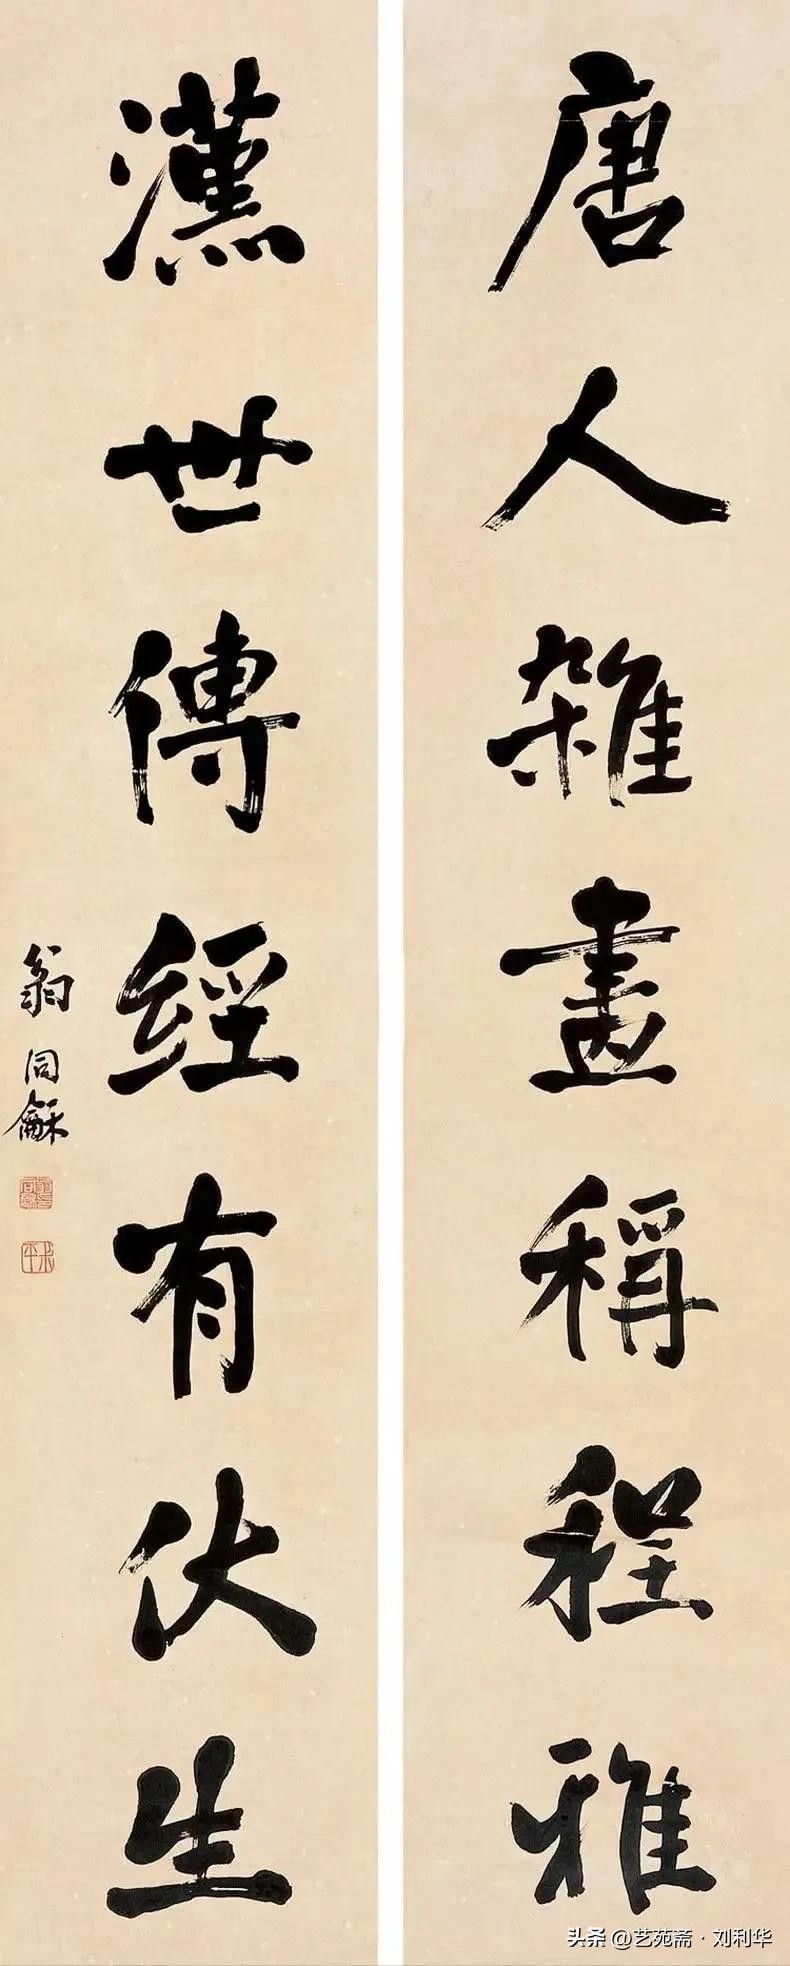 唐人雜畫稱程雅
漢世傳經有伏生
翁同龢
头条 @艺苑斋·刘利华